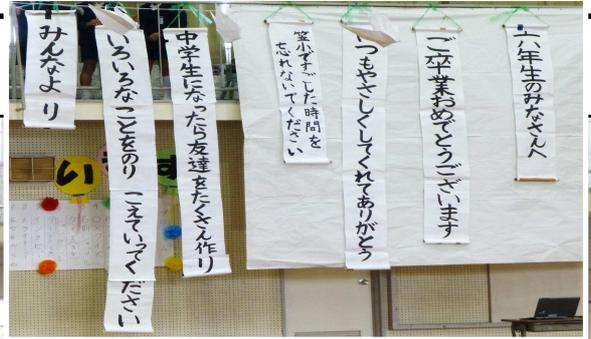 六年生のみなさんへ
ご卒業おめでとうございます
いつもやさしくしてくれてありがとう
笠小ですごした時間を
忘れないでください
中学生になったら友達をたくさん作り
いろいろなことをのり こえていってください
みんなより
い